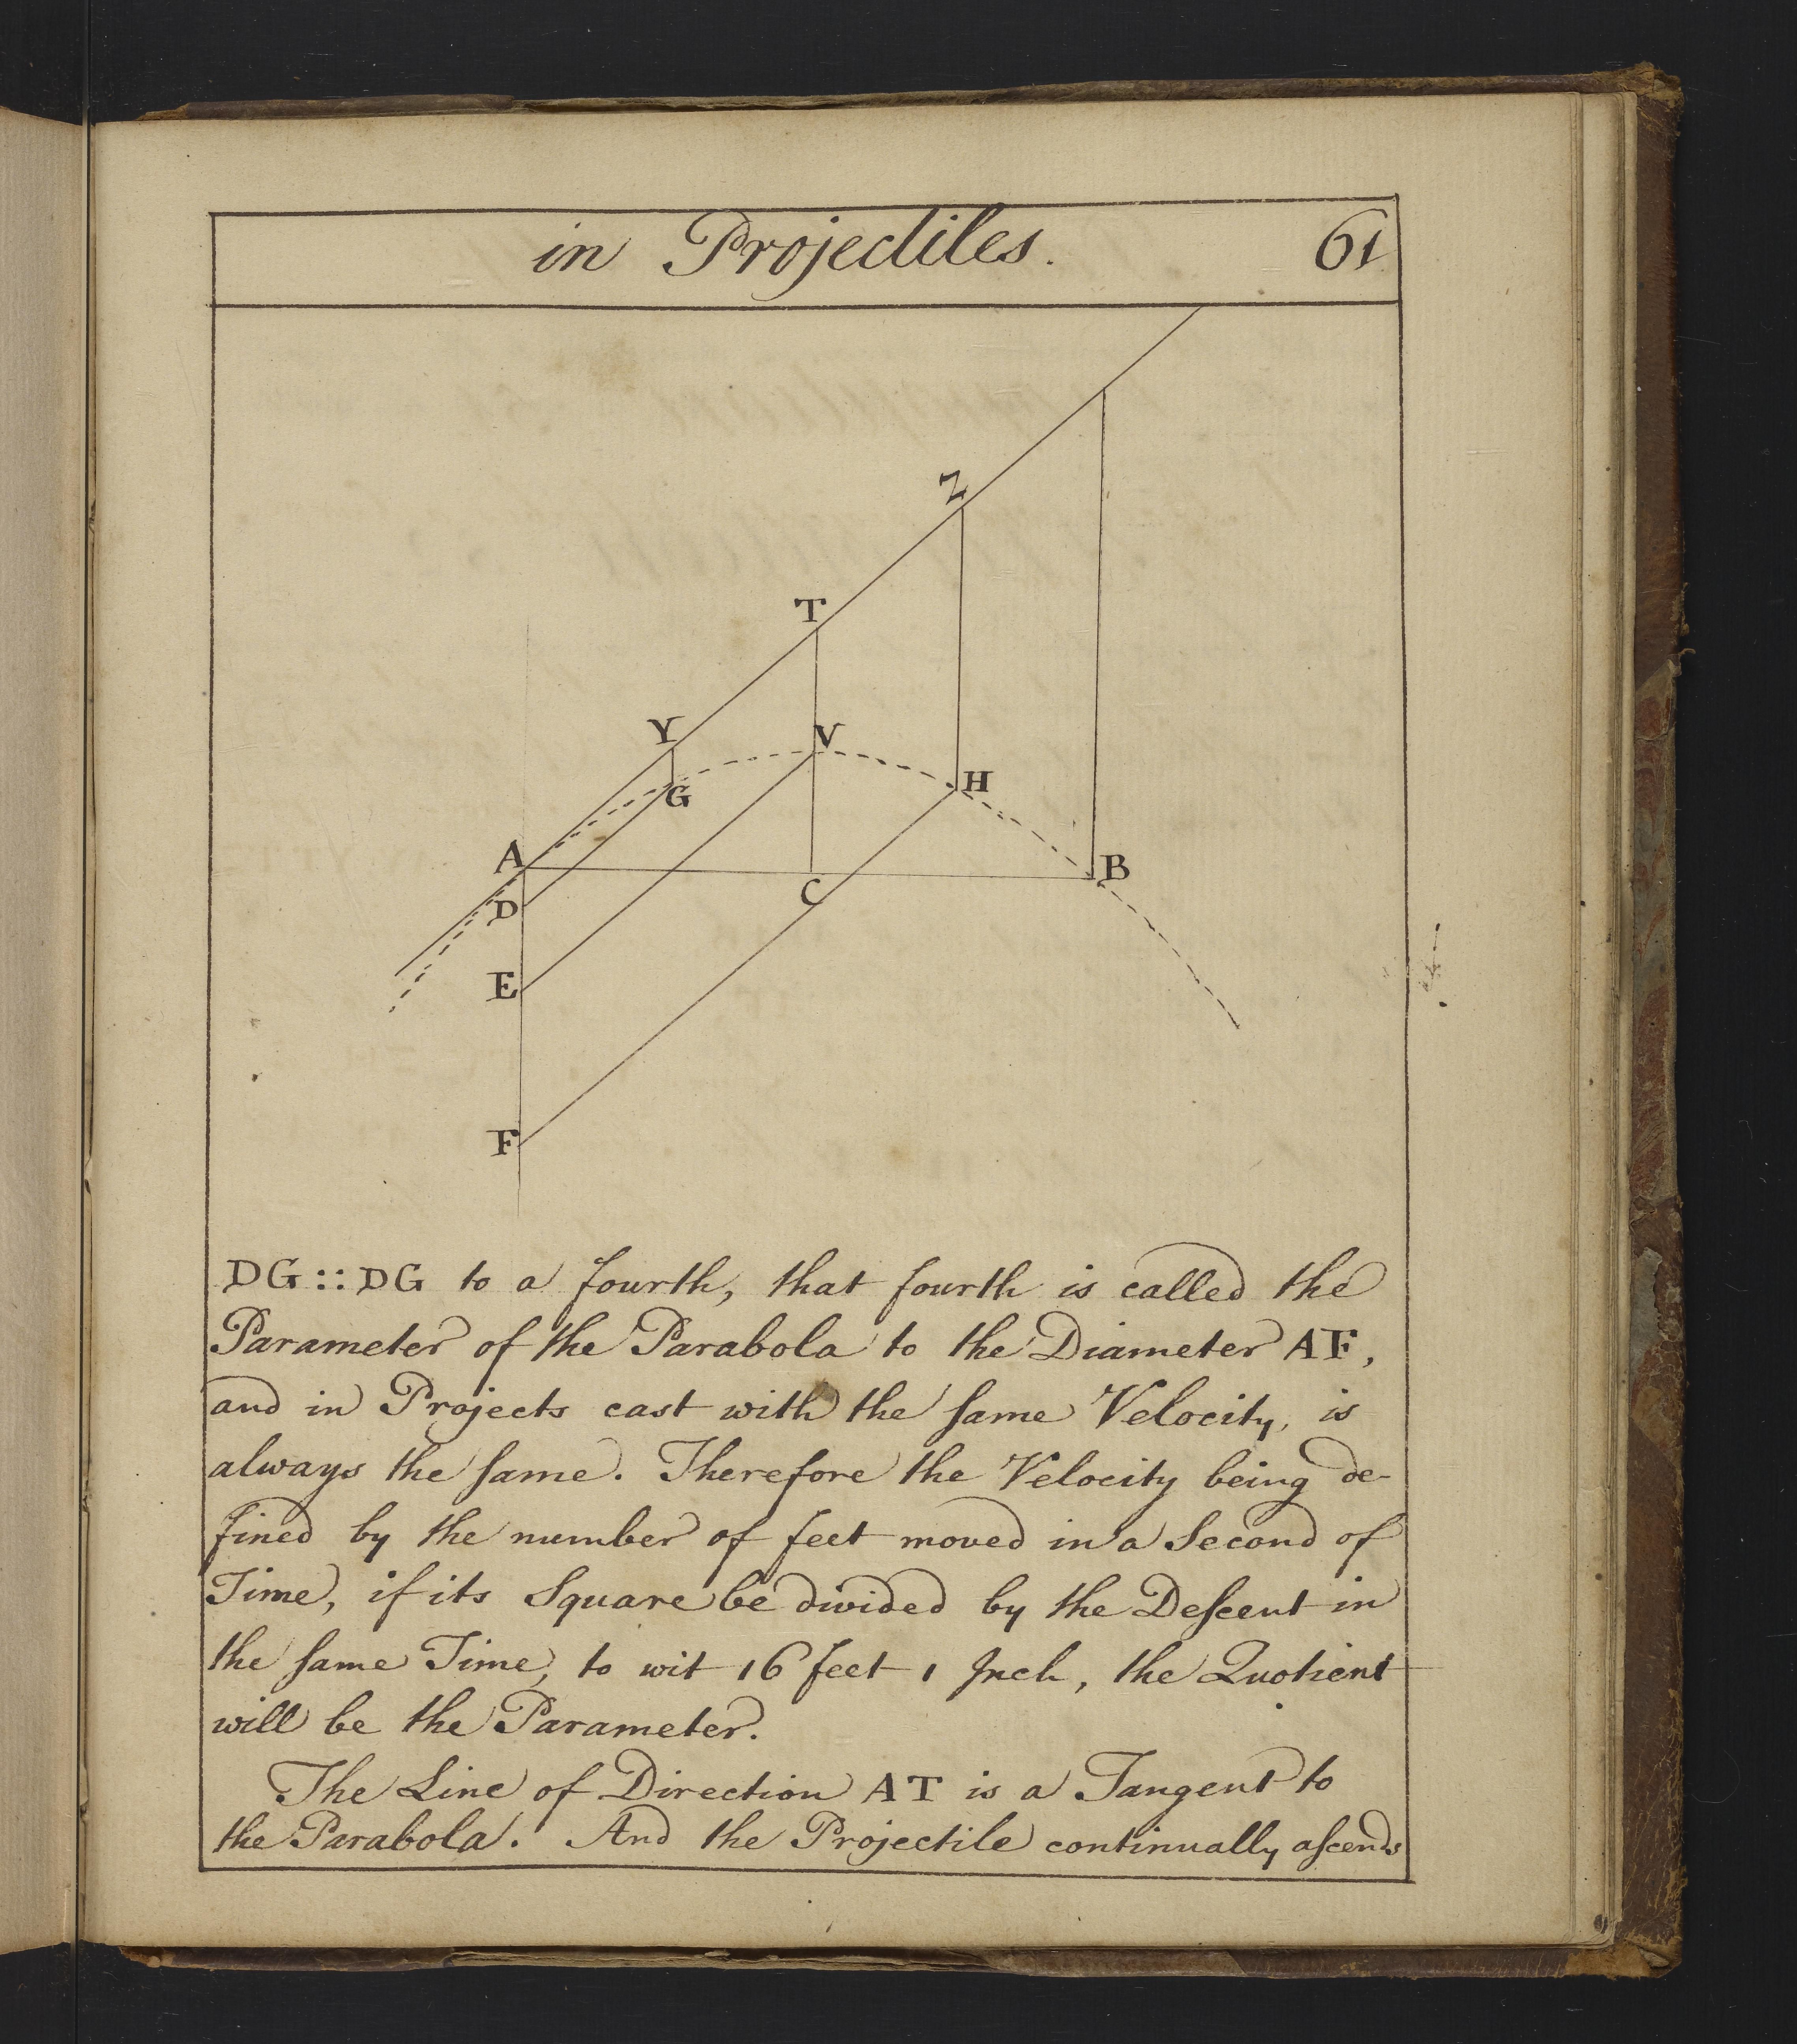 in Projectiles. 61
Z
T
Y V
G H
A B
D C
E
F
DG :: DG to a fourth, that fourth is called the
Parameter of the Parabola to the Diameter AF,
and in Projects cast with the ſame Velocity, is
always the ſame. Therefore the Velocity being de-
fined by the number of feet moved in a Second of
Time, if its Square be divided by the Deſcent in
the ſame Time, to wit 16 feet 1 Inch, the Quotient
will be the Parameter.
The Line of Direction AT is a Tangent to
the Parabola. And the Projectile continually aſcends